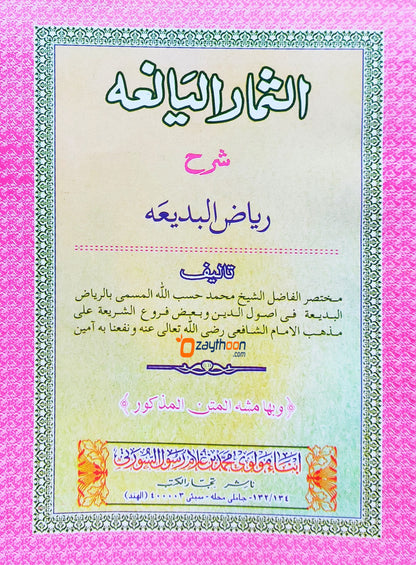 الثمار اليانعه
شرح
رياض البديعه
تاليف
مختصر الفاضل الشيخ محمد حسب الله المسمى بالرياض
البديعة فى اصول الدين وبعض فروع الشريعة على
مذهب الامام الشافعى رضى الله تعالى عنه ونفعنا به آمين
Ozaythoon
.com
﴿ وبهامشه المتن المذكور ﴾
ابناء مولوى محمد بن غلام رسول السورتى
ناشر تجار الكتب
١٣٢/١٣٤- جاملى محله - ممبئى ٤٠٠٠٠٣ (الهند)